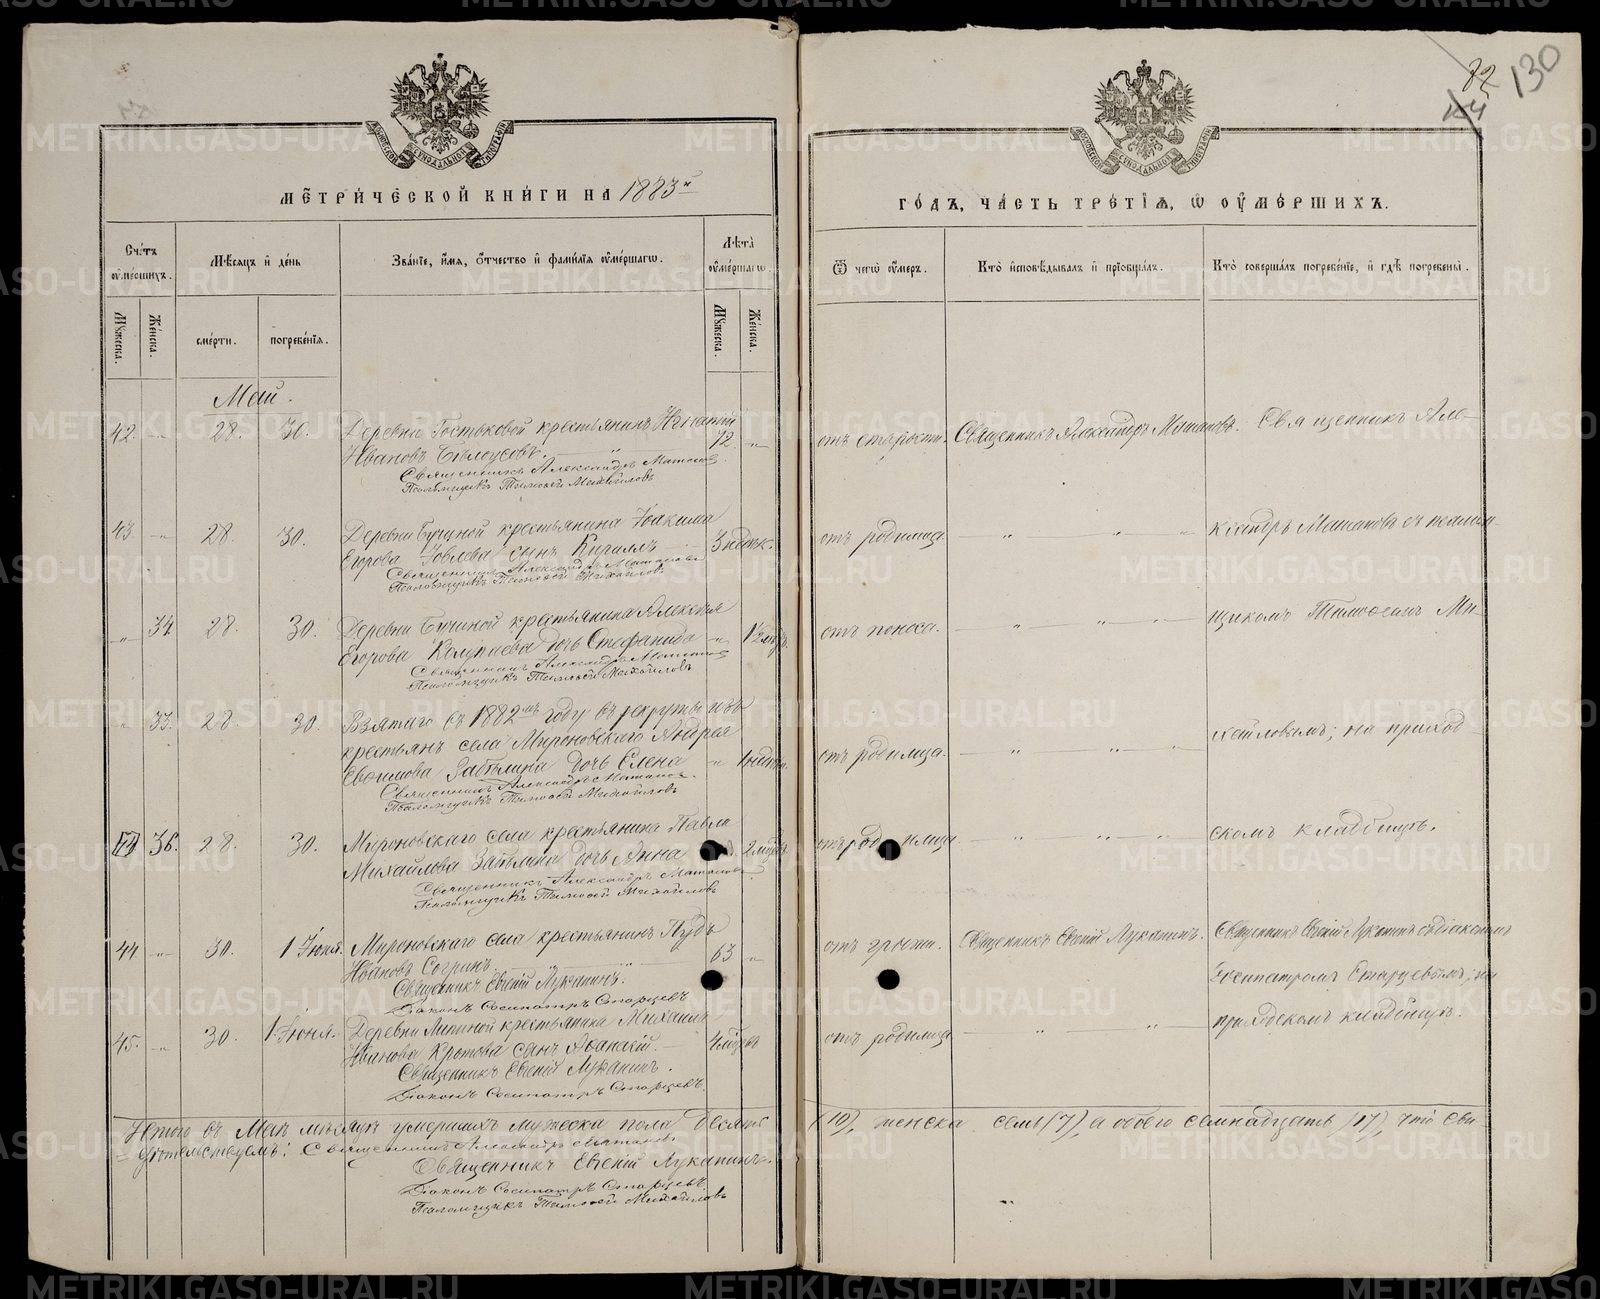 82 130
МЕТРИ́ЧЕСКОЙ КНИ́ГИ НА 1883й
ГО́ДЪ, ЧА́СТЬ ТРЕ́ТІЯ, Ѿ ОУМЕ́РШИХЪ.
Сче́тъ оуме́ршихъ.
Мѣсяцъ и де́нь
Зва́ніе, и́мя, о́тчество и фами́лія оуме́ршагѡ.
Лѣта̀ оуме́ршагѡ
Ѿ чегѡ̀ оу́меръ.
Кто̀ исповѣ́дывалъ и пріобща́лъ.
Кто̀ соверша́лъ погребе́ніе, и гдѣ̀ погребены̀.
Мꙋжеска. Же́нска.
сме́рти. погребе́нія.
Мꙋжеска. Же́нска.
Май.
42. " 28. 30. Деревни Гостьковой крестьянинъ Игнатій 72. "
Ивановъ Бѣлоусовъ.
Священникъ Александръ Матановъ
Псаломщикъ Тимоѳей Михайловъ
отъ старости. Священникъ Александръ Матановъ. Священникъ Але-
43 " 28 30. Деревни Бучиной крестьянина Іоакима 3 недѣл.
Егорова сынъ Кириллъ
Священникъ Александръ Матановъ
Псаломщикъ Тимоѳей Михайловъ
отъ родимца. " " " ксандръ Матановъ съ псалом-
" 34 28. 30. Деревни Бучиной крестьянина Алексѣя
Егорова дочь Стефанида "
Священникъ Александръ Матановъ
Псаломщикъ Тимоѳей Михайловъ
отъ поноса. " " " щикомъ Тимоѳеемъ Ми-
" 28 30. Взятаго въ 1882мъ году въ рекруты изъ
крестьянъ села Мироновскаго Андрея
Евѳимова Забѣлина дочь Елена "
Священникъ Александръ Матановъ.
Псаломщикъ Тимоѳей Михайловъ
отъ родимца. " " " хайловымъ; на приход-
36. 28. 30. Мироновскаго села крестьянина Павла
Михайлова Забѣлина дочь Анна
Священникъ Александръ Матановъ.
Псаломщикъ Тимоѳей Михайловъ
отъ родимца " " " скомъ кладбищѣ.
44 " 30. 1 Іюня. Мироновскаго села крестьянинъ Пудъ 63 "
Ивановъ Согринъ.
Священникъ Евгеній Луканинъ.
Діаконъ Сосипатръ Старцевъ
отъ грыжи. Священникъ Евгеній Луканинъ. Священникъ Евгеній Луканинъ съ діакономъ
Сосипатромъ Старцевымъ; на
45. " 30. 1 Іюня. Деревни Липиной крестьянина Михаила
Иванова Кротова сынъ Аѳанасій.
Священникъ Евгеній Луканинъ.
Діаконъ Сосипатръ Старцевъ.
отъ родимца " " приходскомъ кладбищѣ.
Итого въ Маѣ мѣсяцѣ умершихъ мужеска пола десять (10), женска семь (7), а обоего семнадцать (17), что сви-
дѣтельствуемъ: Священникъ Александръ Матановъ.
Священникъ Евгеній Луканинъ.
Діаконъ Сосипатръ Старцевъ.
Псаломщикъ Тимоѳей Михайловъ
METRIKI.GASO-URAL.RU